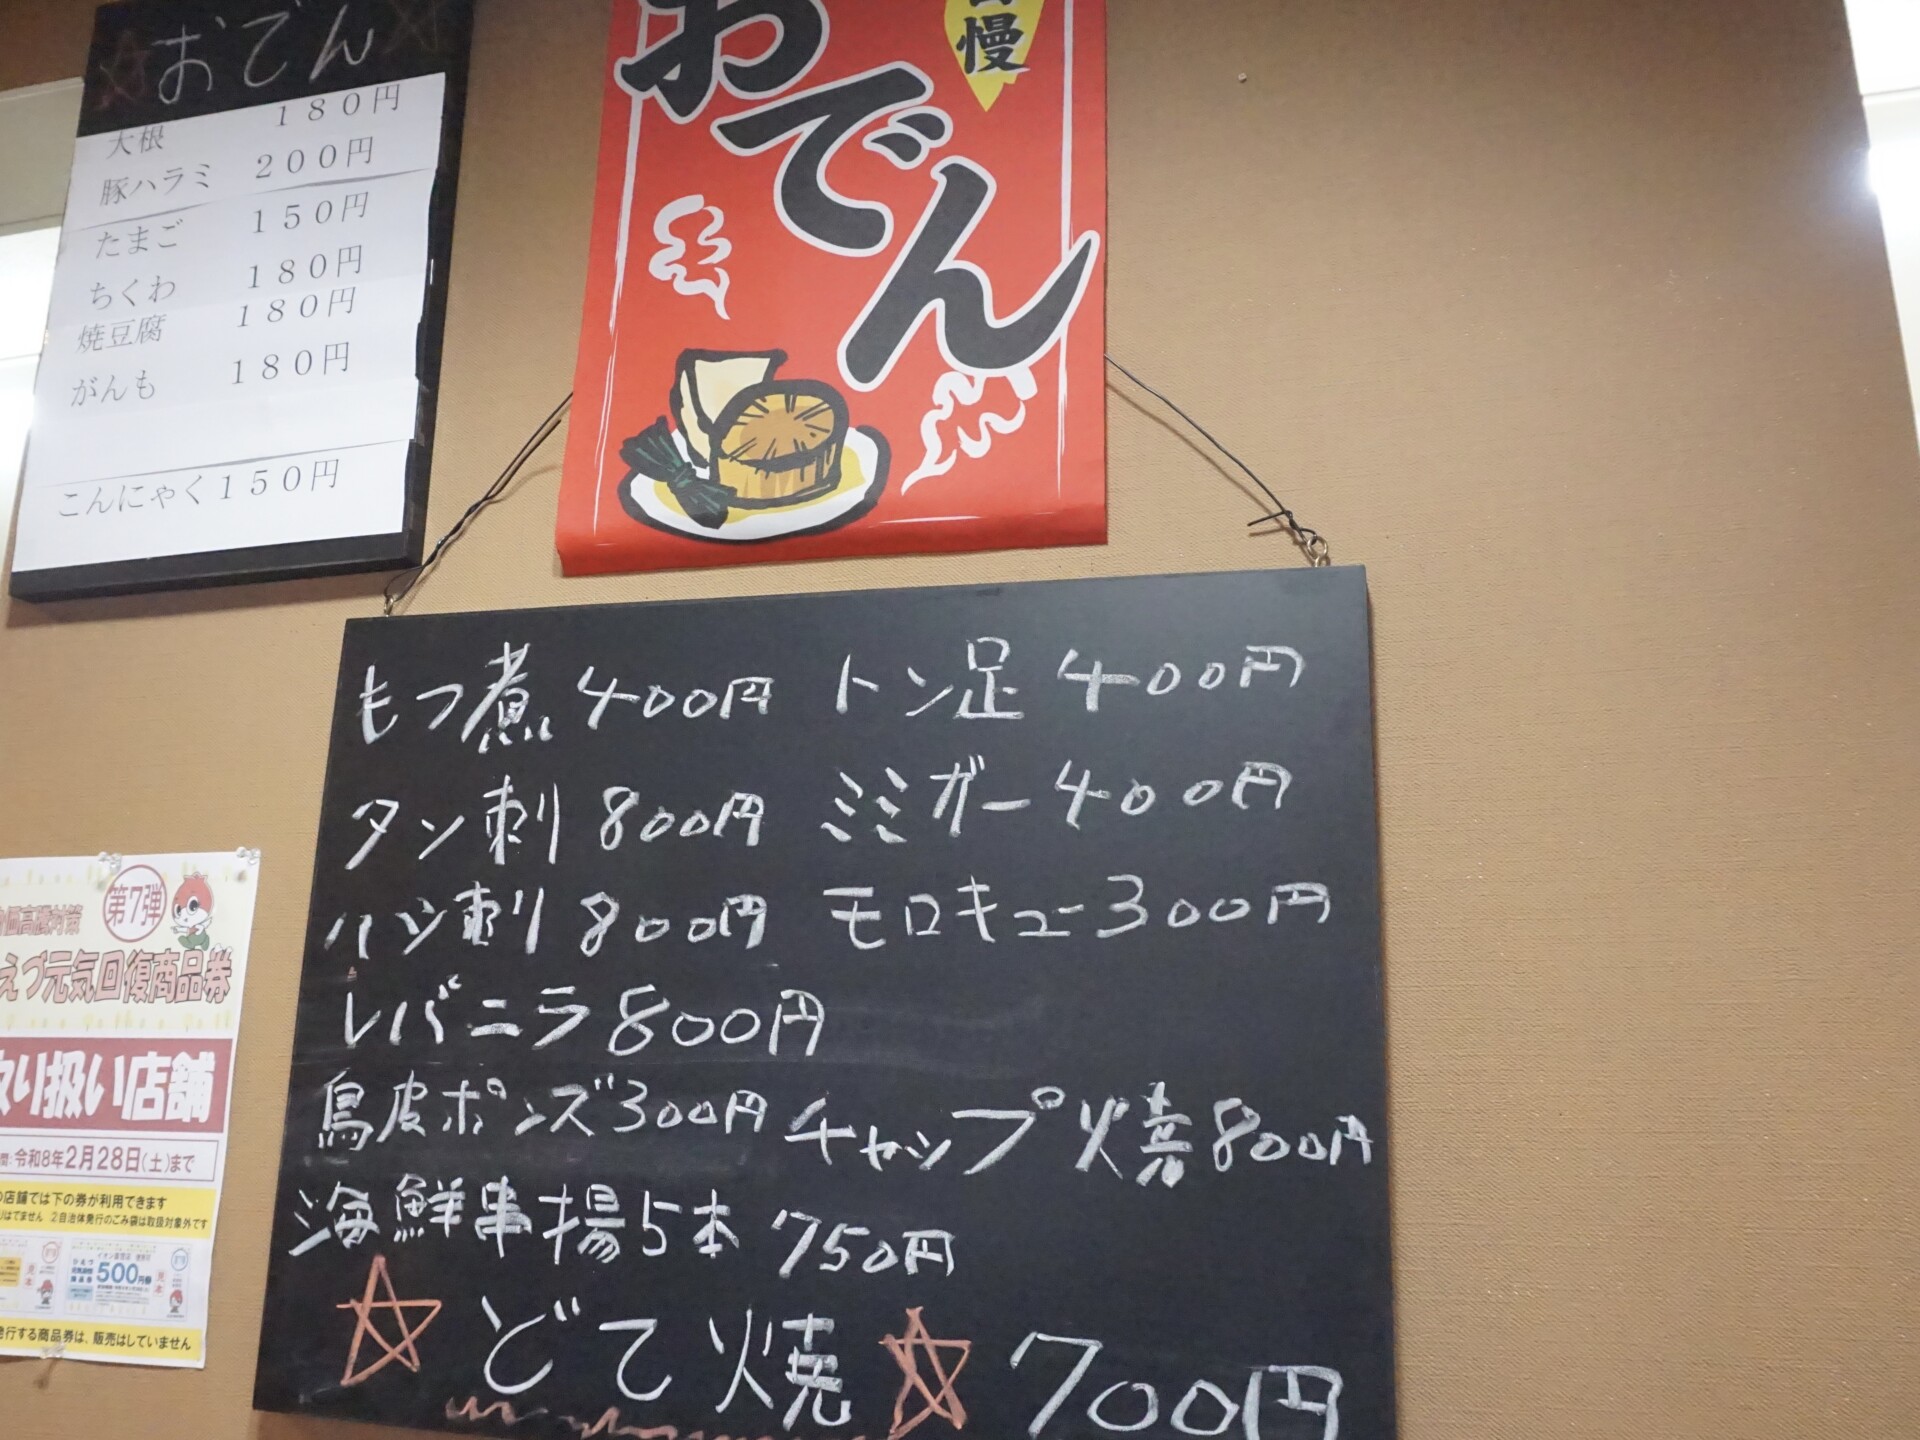 おでん
大根 180円
豚ハラミ 200円
たまご 150円
ちくわ 180円
焼豆腐 180円
がんも 180円
こんにゃく 150円
慢
おでん
もつ煮 400円 トン足 400円
タン刺 800円 ミミガー 400円
ハツ刺 800円 モロキュー 300円
レバニラ 800円
鳥皮ポンズ 300円 チャップ焼 800円
海鮮串揚5本 750円
どて焼 700円
第7弾
価高騰対策
えづ元気回復商品券
取り扱い店舗
間:令和8年2月28日(土)まで
の店舗では下の券が利用できます
りはでません ②自治体発行のごみ袋は取扱対象外です
500円券
見本
発行する商品券は、販売はしていません